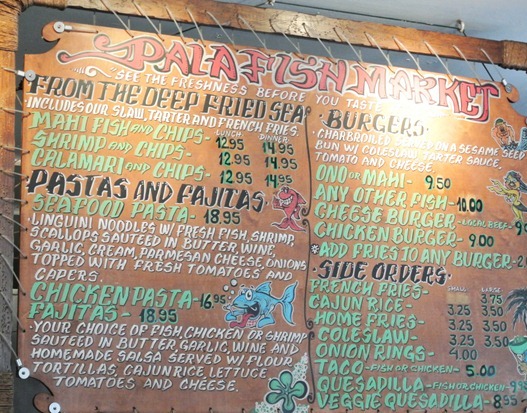 PAIA FISH MARKET
SEE THE FRESHNESS BEFORE YOU TASTE
FROM THE DEEP FRIED SEA
·INCLUDES OUR SLAW, TARTER AND FRENCH FRIES.
LUNCH DINNER
MAHI FISH AND CHIPS- 12.95 14.95
SHRIMP AND CHIPS- 12.95 14.95
CALAMARI AND CHIPS- 12.95 14.95
PASTAS AND FAJITAS
SEAFOOD PASTA- 18.95
·LINGUINI NOODLES W/ FRESH FISH, SHRIMP,
SCALLOPS SAUTEED IN BUTTER, WINE,
GARLIC, CREAM, PARMESAN CHEESE, ONIONS
TOPPED WITH FRESH TOMATOES AND
CAPERS.
CHICKEN PASTA- 16.95
FAJITAS- 18.95
·YOUR CHOICE OF FISH, CHICKEN OR SHRIMP
SAUTEED IN BUTTER, GARLIC, WINE AND
HOMEMADE SALSA SERVED W/ FLOUR
TORTILLAS, CAJUN RICE, LETTUCE
TOMATOES AND CHEESE.
BURGERS
·CHARBROILED, SERVED ON A SESAME SEED
BUN W/ COLESLAW, TARTER SAUCE,
TOMATO AND CHEESE
ONO OR MAHI- 9.50
ANY OTHER FISH- 10.00
CHEESE BURGER -LOCAL BEEF-
CHICKEN BURGER- 9.00
*ADD FRIES TO ANY BURGER-
SIDE ORDERS
SMALL LARGE
FRENCH FRIES- 3.75
CAJUN RICE- 3.25 3.50
HOME FRIES- 3.25 3.50
COLESLAW- 3.25 3.50
ONION RINGS- 4.00
TACO -FISH OR CHICKEN- 5.00
QUESADILLA -FISH OR CHICKEN-
VEGGIE QUESADILLA- 8.95